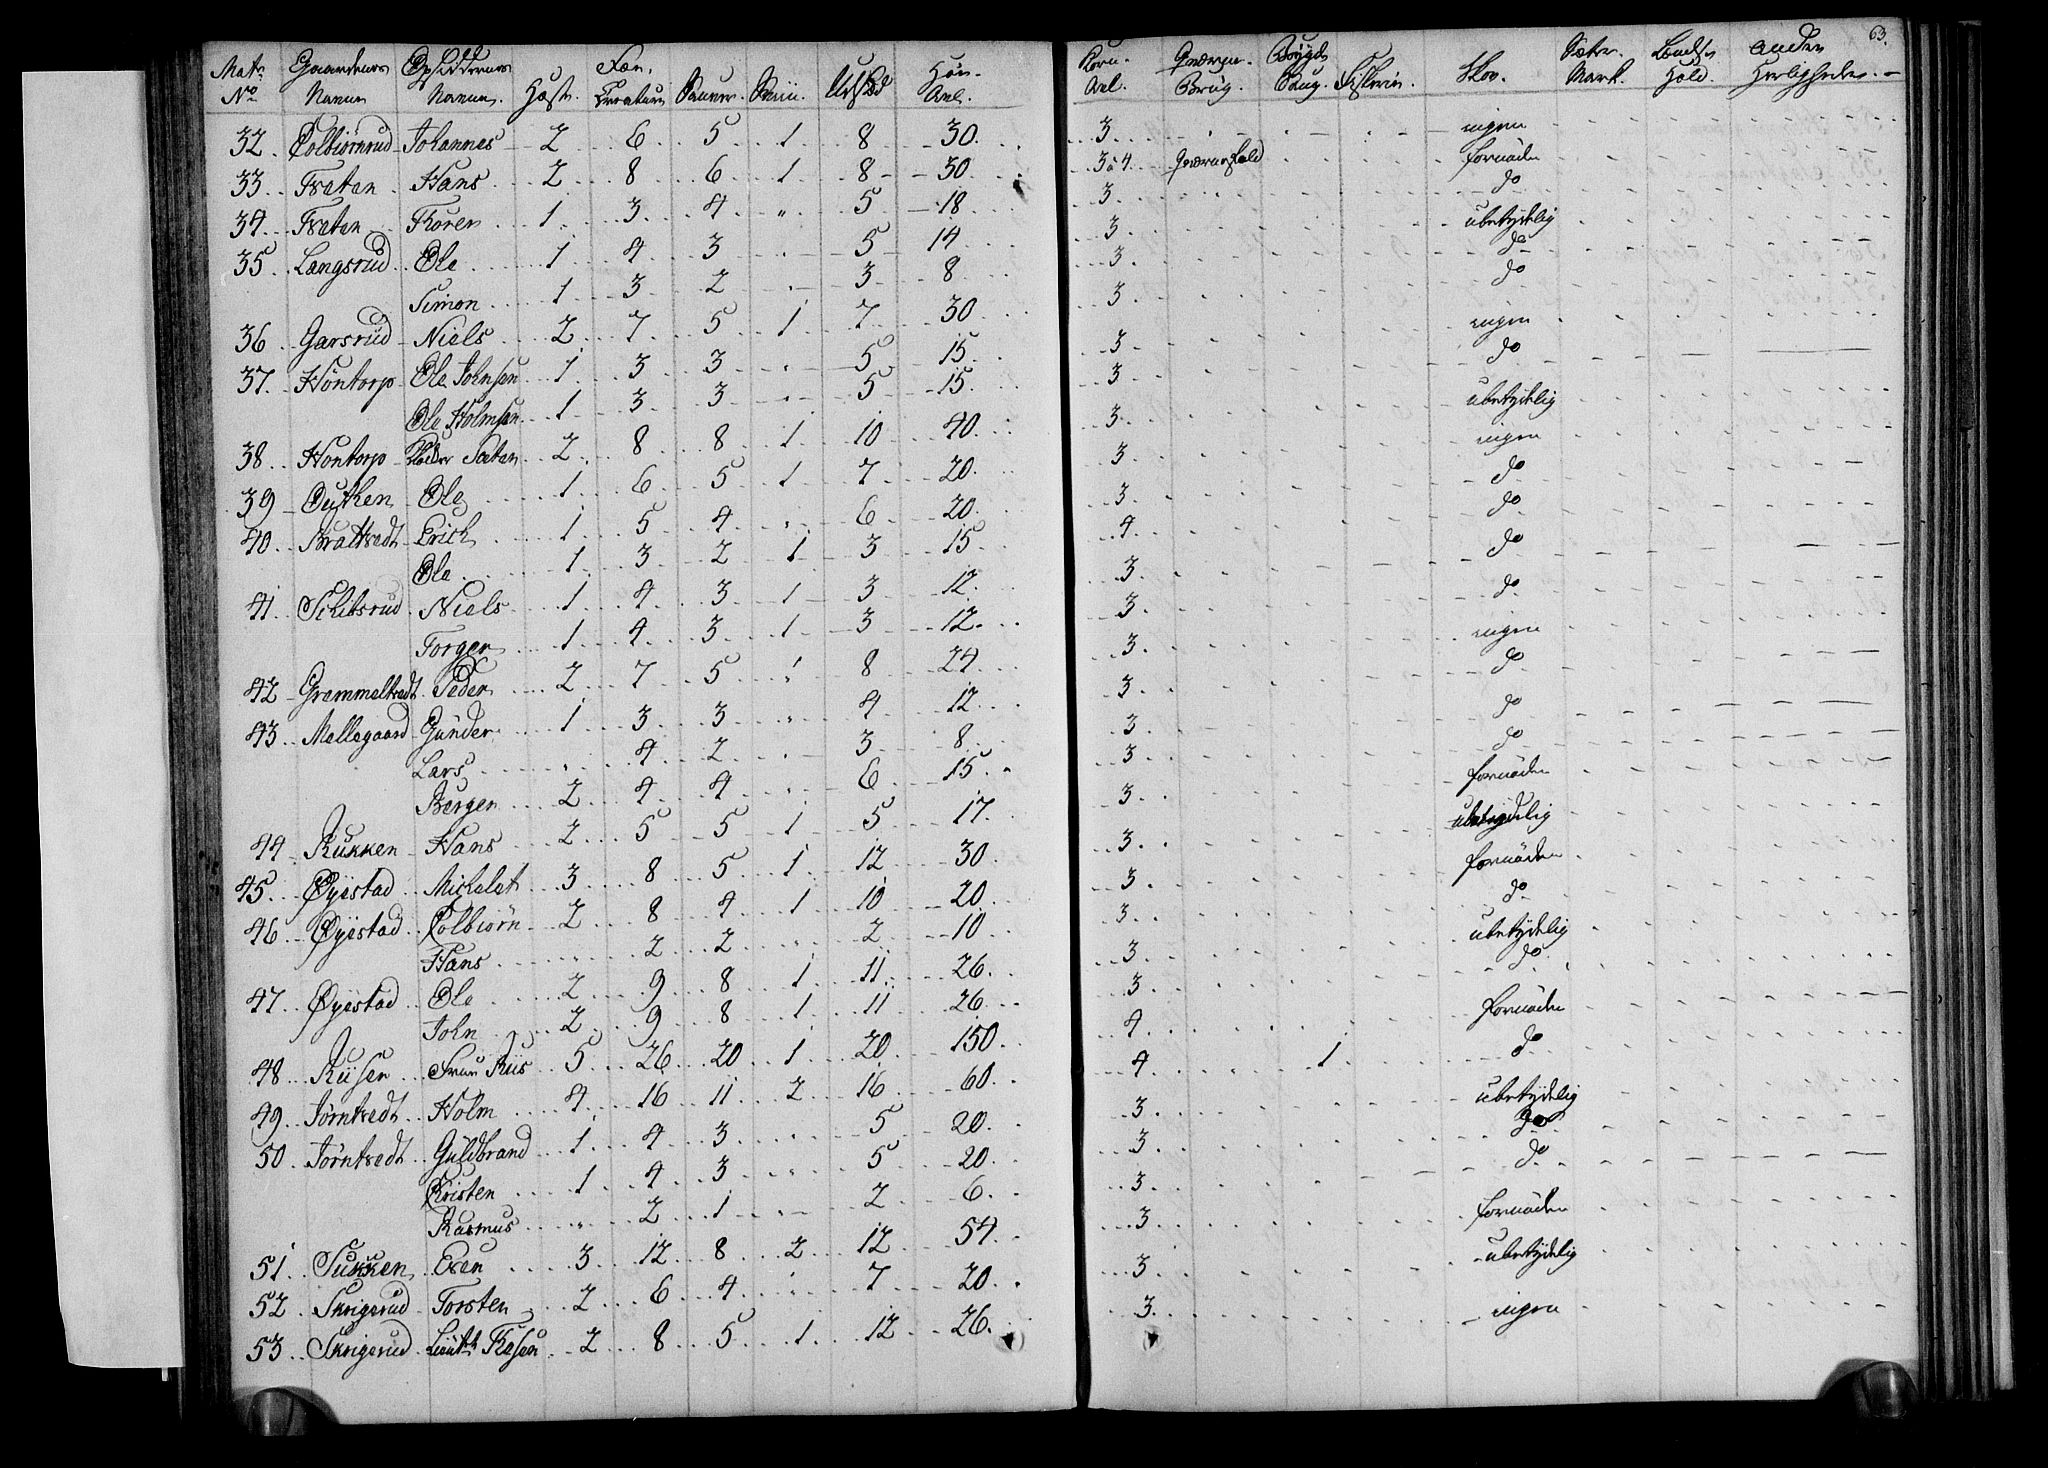 63.
Mat: No Gaardenes Navne Opsiddernes Navne. Hæste. Fæe, Creature Sauer. Sviin. Udsæd Høe- Avl.
32. Colbiørnrud Johannes 2 6 5 1 8 30.
33. Træten Hans 2 8 6 1 8 30.
34. Træten Thoren 1 3 4 " 5 18
35 Langsrud Ole 1 4 3 5 14
Simon 1 3 2 3 8
36 Garsrud Niels 2 7 5 1 7 30
37. Hontorp Ole Johnsen 1 3 3 5 15.
Ole Holmsen 1 3 3 5 15.
38 Hontorp Peder Sætan 2 8 8 1 10 40.
39 Dutken Ole 1 6 5 1 7 20.
40 Brattvedt Erich 1 5 4 6 20.
Ole 1 3 2 1 3 15
41 Schitsrud Niels 1 4 3 1 3 12.
Torger 1 4 3 1 3 12.
42 Gremmeltvedt Peder 2 7 5 8 24
43 Mellegaard Gunder 1 3 3 4 12
Lars 4 2 3 8
Børger 2 4 4 6 15
44 Rukken Hans 2 5 5 1 5 17.
45 Øyestad Michelet 3 8 5 1 12 30
46 Øyestad Colbiørn 2 8 4 1 10 20
Hans 2 2 2 10
47 Øyestad Ole 2 9 8 1 11 26.
John 2 9 8 1 11 26.
48 Riisen Frue Riis 5 26 20 1 20 150
49 Jørntvedt Holm 4 16 11 2 16 60.
50 Jørntvedt Guldbrand 1 4 3 5 20.
Kristen 1 4 3 5 20.
Rasmus 2 1 2 6.
51 Sukken Even 3 12 8 2 12 54.
52 Skrigerud Torsten 2 6 4 7 20.
53 Skrigerud Lieut: 2 8 5 1 12 26.
Korn- Avl. Qværne- Brug. Bøygde Brug. Fiskerie. Skov. Sæter- Mark. Leedes Hold. Andre Herligheder.
3 ingen
3 a 4 Qværnefald fornøden
3 do
3 ubetydelig
3 do
3 do
3 ingen
3 do
3 ubetydelig
3 ingen
3 do
4 do
3 do
3 do
3 ingen
3 do
3 do
3 do
3 fornøden
3 ubetydelig
3 fornøden
3 do
3 ubetydelig
3 do
4 fornøden
4 1 do
3 ubetydelig
3 do
3 do
3 fornøden
3 ubetydelig
3 ingen